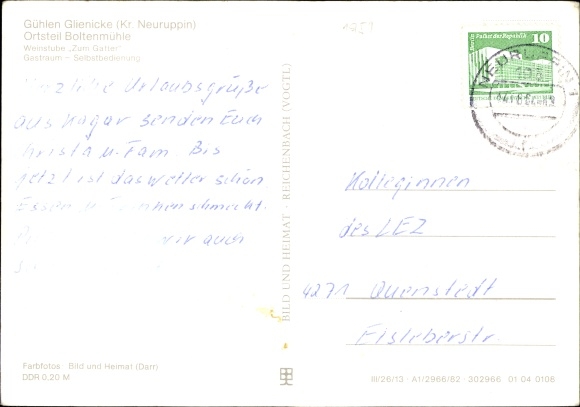 Gühlen Glienicke (Kr. Neuruppin)
Ortsteil Boltenmühle
Weinstube „Zum Gatter"
Gastraum – Selbstbedienung
Herzliche Urlaubsgrüße
aus Kagar senden Euch
Christa u. Fam. Bis
jetzt ist das Wetter schön,
Essen u. Trinken schmeckt.
wir auch
BILD UND HEIMAT · REICHENBACH (VOGTL)
Berlin Palast der Republik
10
NEURUPPIN 1
Kolleginnen
des LEZ
4271 Quenstedt
Eisleberstr.
Farbfotos: Bild und Heimat (Darr)
DDR 0,20 M
III/26/13 · A1/2966/82 · 302966 01 04 0108